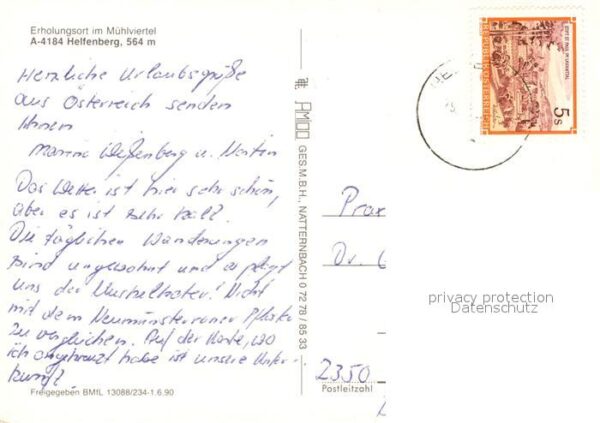 Erholungsort im Mühlviertel
A-4184 Helfenberg, 564 m
Herzliche Urlaubsgrüße
aus Österreich senden
Ihnen
Weißenberg u. Martin
Das Wetter ist hier sehr schön,
aber es ist sehr kalt.
Die täglichen Wanderungen
sind ungewohnt und es plagt
uns der Muskelkater! Nicht
mit dem Neumünsteraner Pflaster
zu vergleichen. Auf der Karte, wo
ich angekreuzt habe ist unsere Unter-
kunft.
Freigegeben BMfL 13088/234-1.6.90
AMDO GES.M.B.H., NATTERNBACH 0 72 78 / 85 33
REPUBLIK ÖSTERREICH
5 S
Prax
Dr.
privacy protection
Datenschutz
2350
Postleitzahl